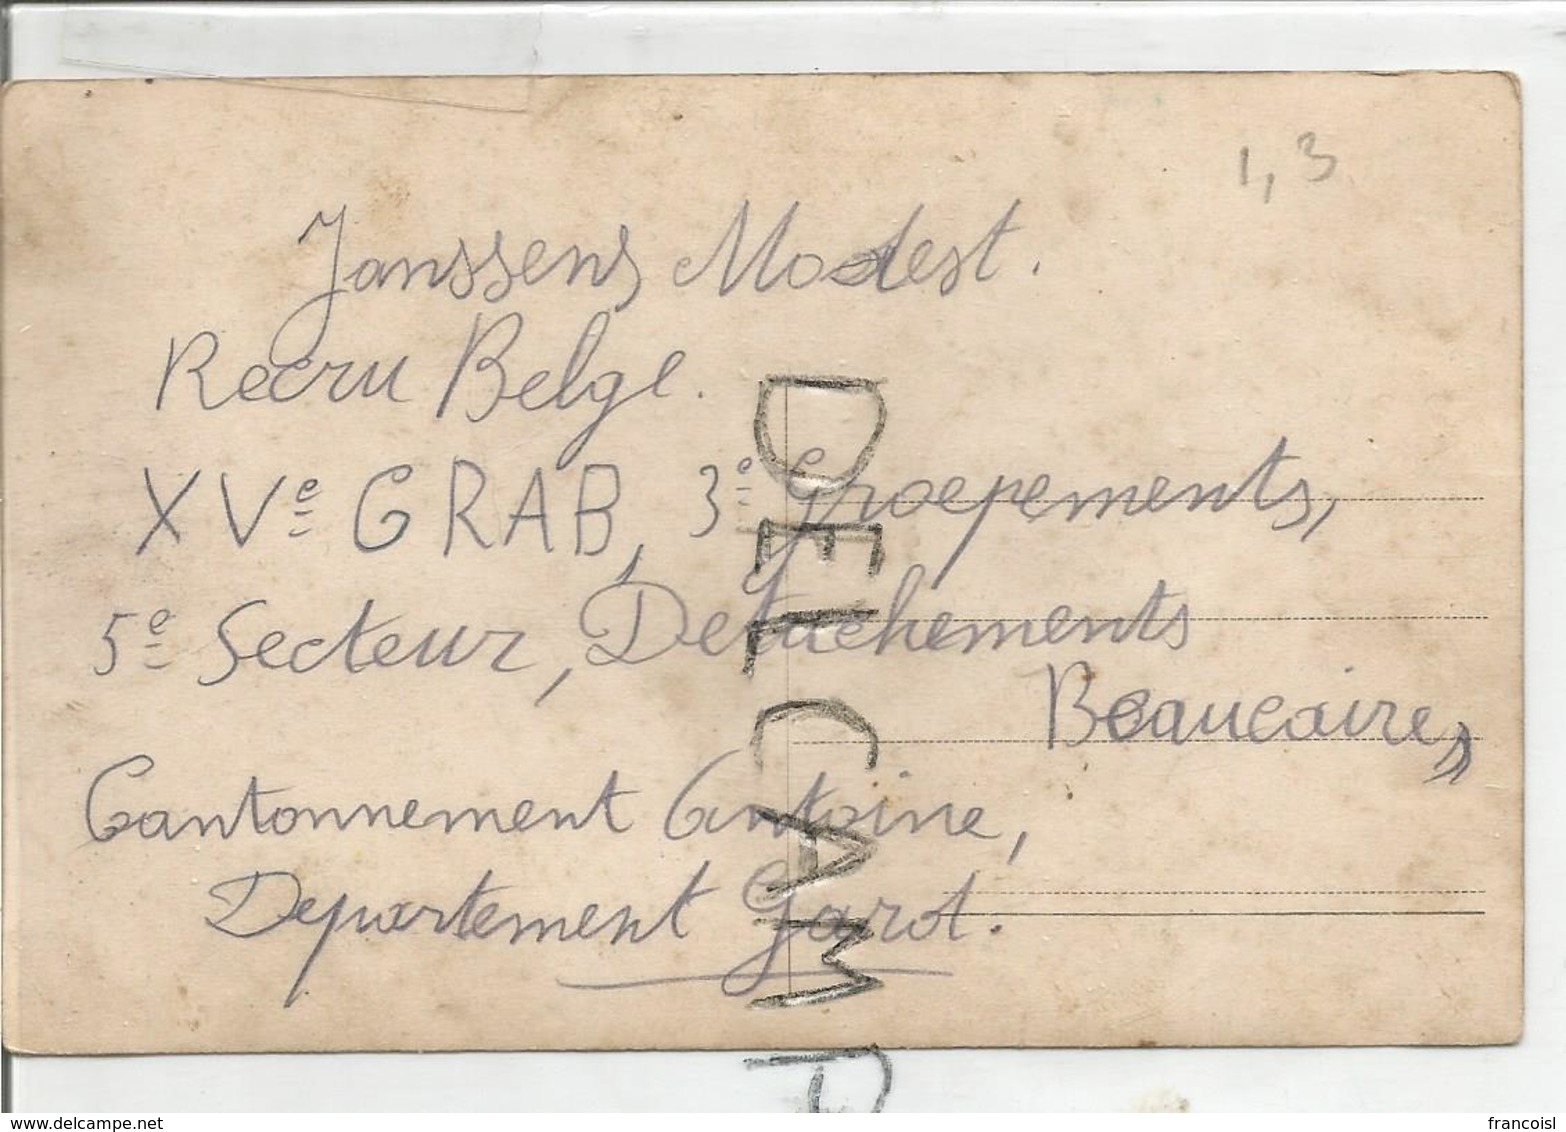 1,3
Janssens Modest.
Recru Belge.
XVe GRAB, 3e Groepements,
5e Secteur, Detachements
Beaucaire,
Cantonnement Antoine,
Departement Garot.
DELCAMP
www.delcampe.net
francoisl